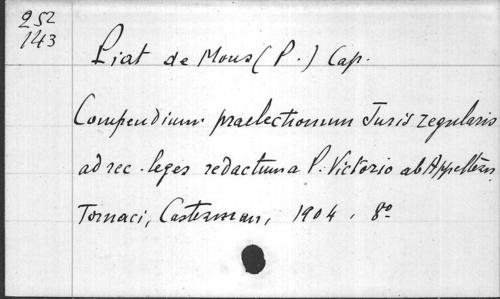 252
143
Piat de Mons (P.) Cap.
Compendium praelectionum Juris regularis
ad rec. leges redactum a P. Victorio ab Appeltern.
Tornaci, Casterman, 1904. 8º